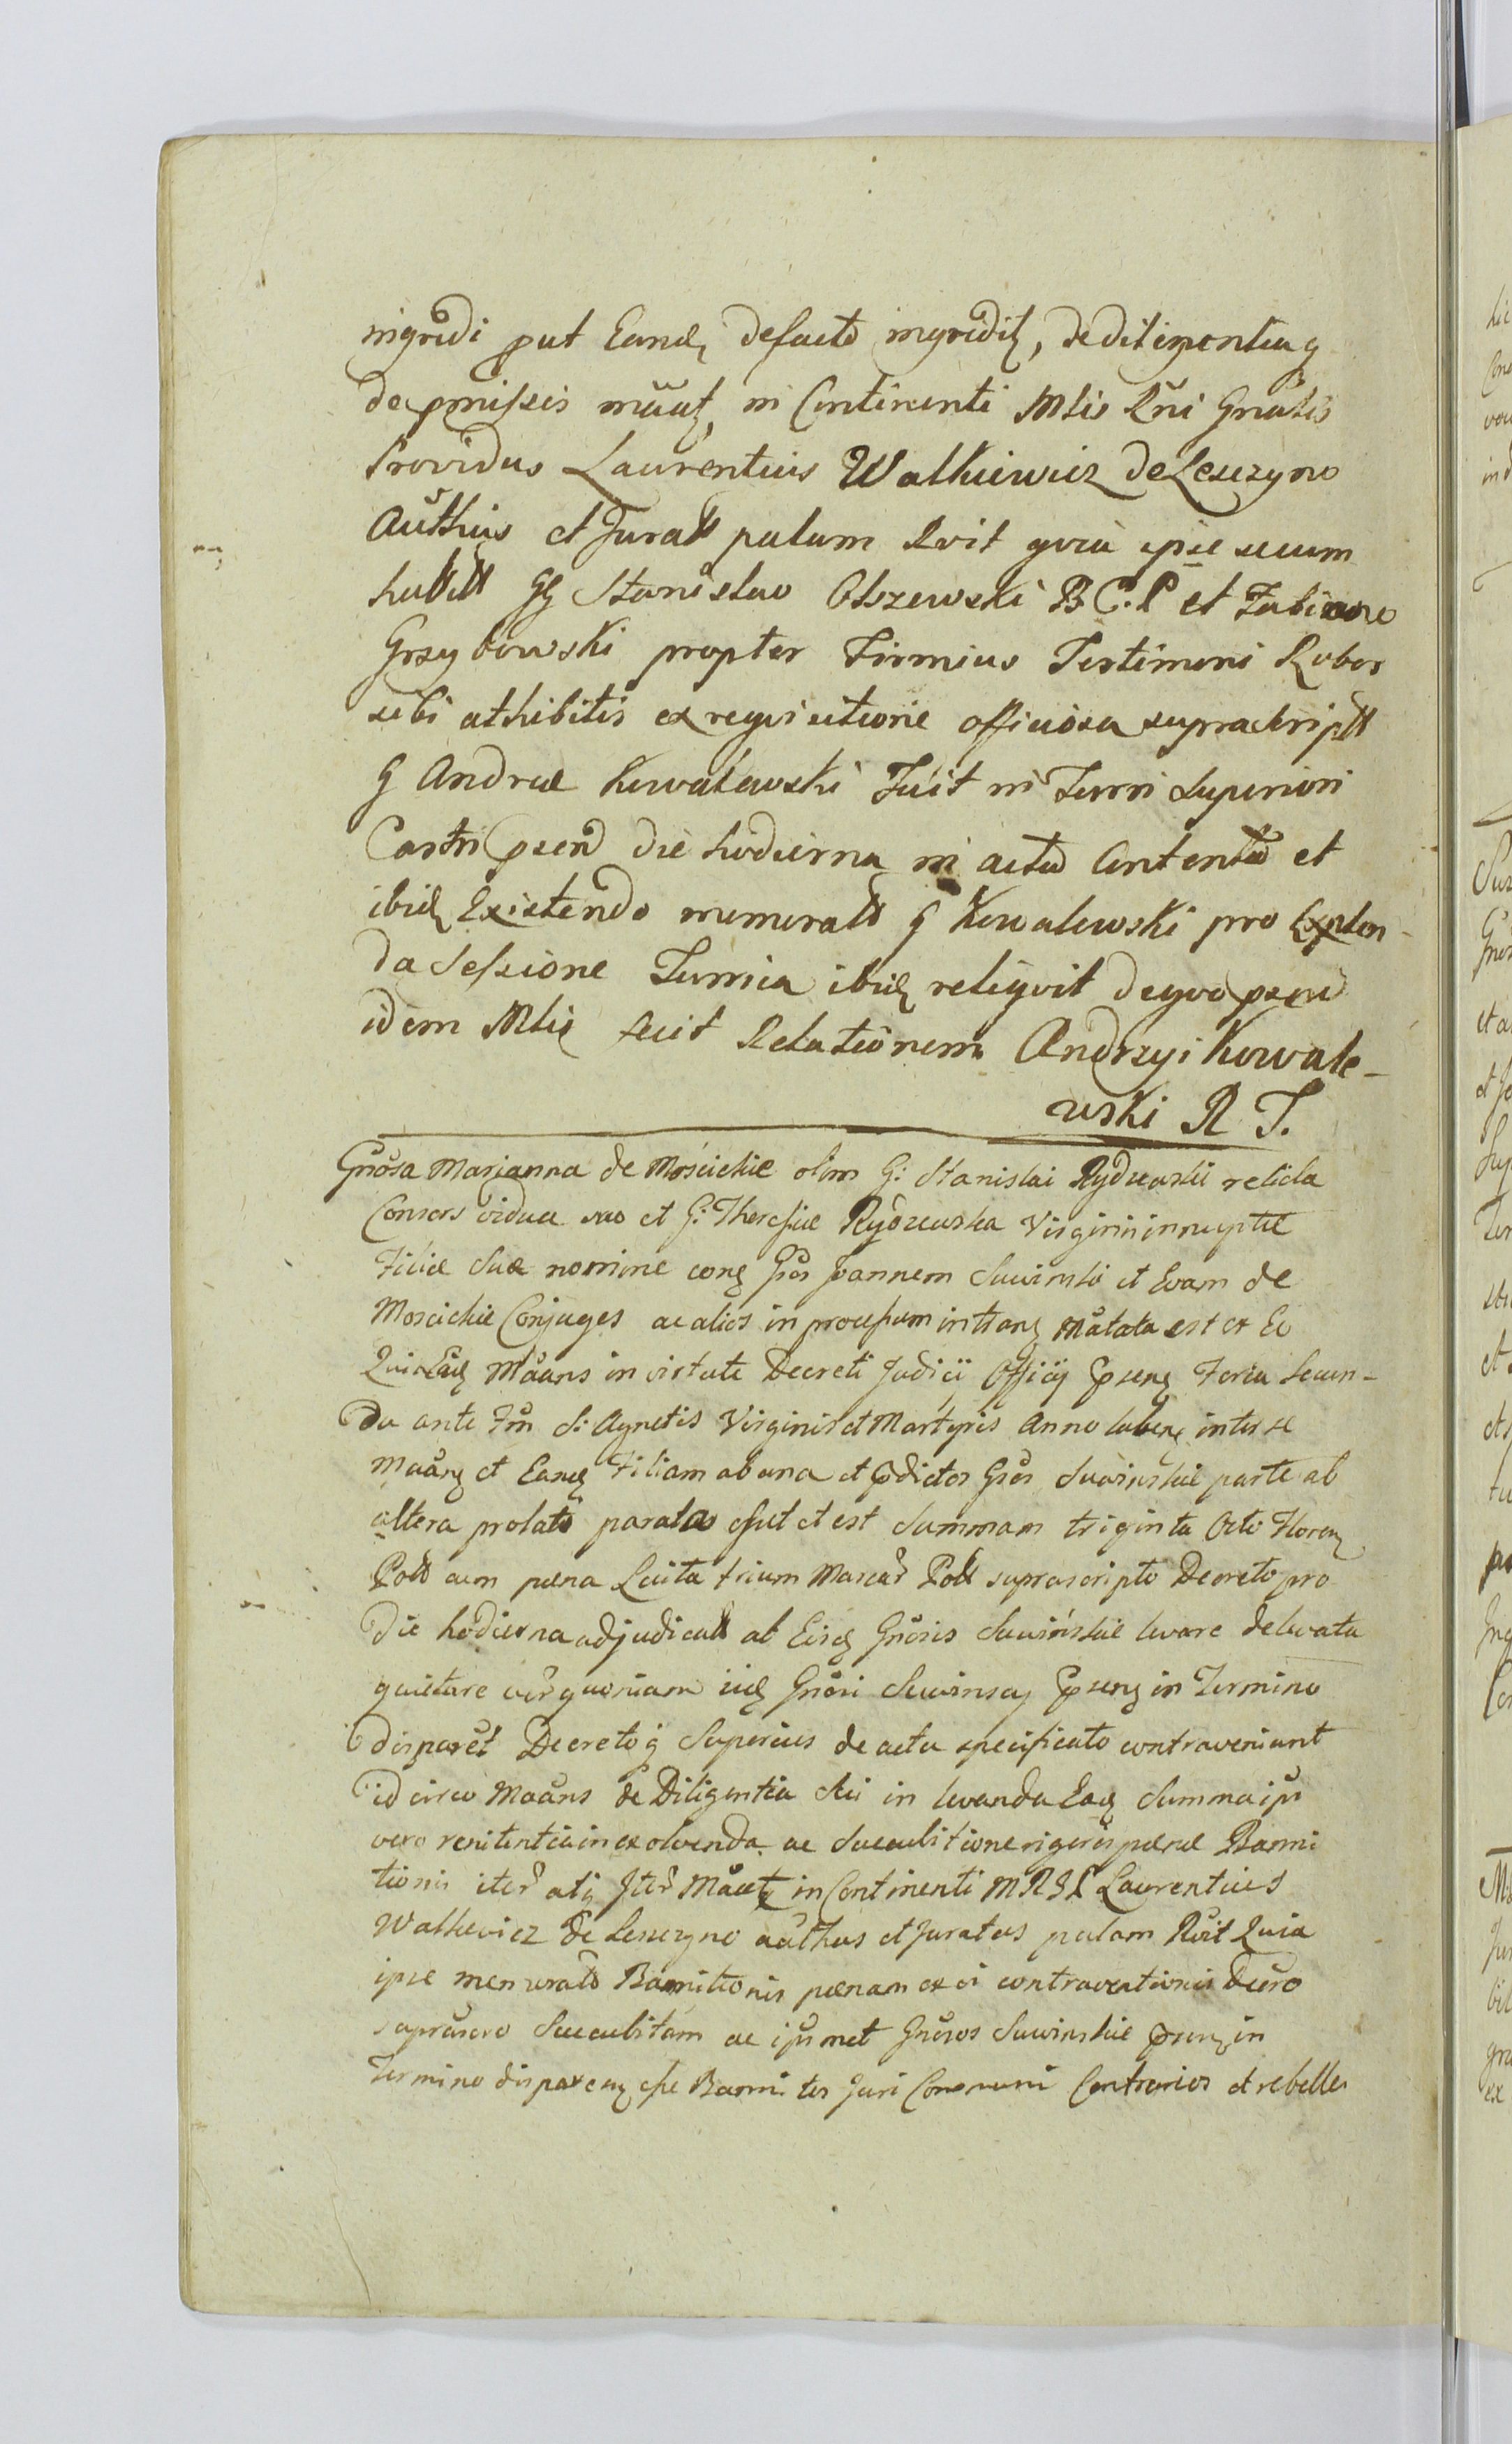 ingredi put Eand defacto ingredit, dedit
de pmissis in Continenti Mlis Rni Gnalis
Providus Laurentius Walkiewicz de Leszczyno
Authus et Jurat palam Rvit qvia ipse secum
habitt GG Stanislao Olszewski B C. P et Fabiano
Grzybowski propter Firmius Testimoni Robor
sibi athibitis ex reqvisitione officiosa suprascriptt
G Andreae Kowalewski Fuit in Turri Superiori
Castri psen die hodierna in actu Contento et
ibid Existendo memoratt G Kowalewski pro Explen-
da Sessione Turria ibid reliqvit deqvo psens
idem Mlis fecit Relationem Andrzyi Kowale-
wski R T.
Gnosa Marjanna de Mościckie olim G: Stanislai Rydzewski relicta
Consors vidua suo et G: Theresiae Rydzewska Virginis innuptae
Filiae Suae nomine Gsos Joannem Suwinski et Evam de
Moscickie Conjuges ac alios in processum mata est ex Eo
Quia Ead Maans in virtute Decreti Judicii Officij psens Feria Secun-
da ante Fm S: Agnetis Virginis et Martyris Anno labens inter se
Maans et Eand Filiam ab una et pdictos Gsos Suwinskie parte ab
altera prolato parata est Summam triginta Octo Floren
Poll cum paena Lucita trium Marcar Poll suprascripto Decreto pro
die hodierna adjudicatt ab Eisd Gnosis Suwińskie levare delevata
quietare ver quoniam iid Gnosi Suwinscy psens in Termino
disparet Decretoq Superius de actu specificato contraveniunt
id circo Maans de Diligentia Sui in levanda Ead Summa ips
vero renitentia in exolvenda ac Succubitione rigoris paenae Banni
tionis iter atq Iter in Continenti M R G P Laurentius
Walkiewicz de Leszczyno authus et Juratus palam Rvit Quia
ipse memorato Bannitionis paenam ex vi contraventionis Decro
suprascro Succubitam ac ipsmet Gnosos Suwinskie psens in
Termino disparens esse Bannitos Juri Communi Contrarios et rebelles